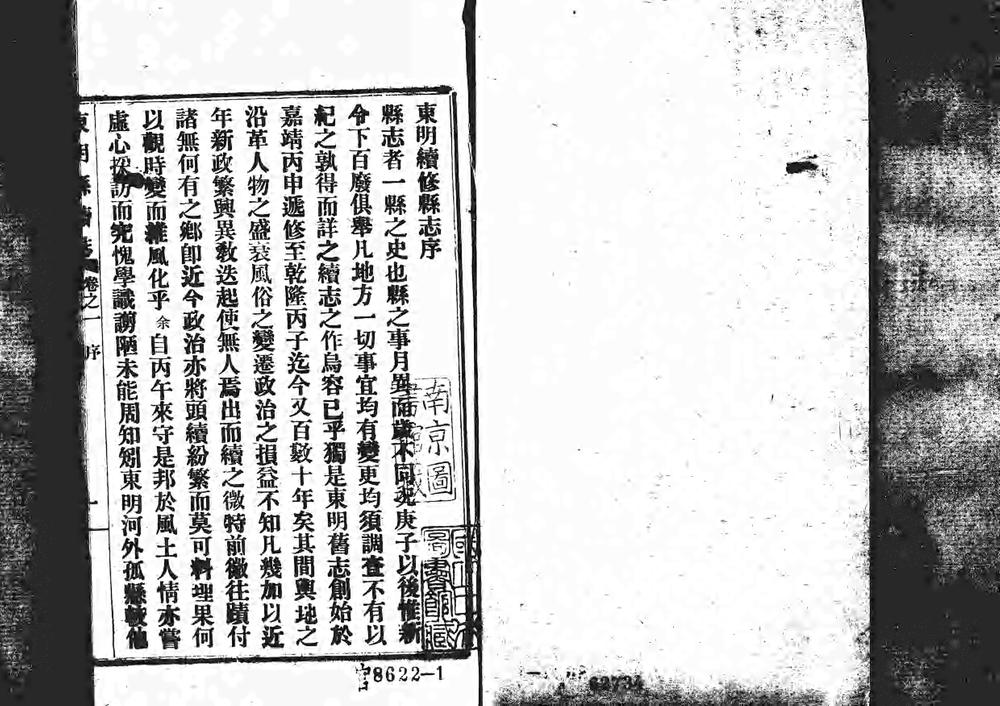 東明續修縣志序
縣志者一縣之史也縣之事月異而歲不同況庚子以後惟新
令下百廢俱舉凡地方一切事宜均有變更均須調查不有以
紀之孰得而詳之續志之作烏容已乎獨是東明舊志創始於
嘉靖丙申遞修至乾隆丙子迄今又百數十年矣其間輿地之
沿革人物之盛衰風俗之變遷政治之損益不知凡幾加以近
年新政繁興異教迭起使無人焉出而續之微特前徽往蹟付
諸無何有之鄉卽近今政治亦將頭緖紛繁而莫可料理果何
以觀時變而維風化乎余自丙午來守是邦於風土人情亦嘗
虛心探訪而究愧學識譾陋未能周知矧東明河外孤縣較他
東明縣續志 卷之一 序 一
南京圖
書館藏
圖書館藏
8622-1
62734